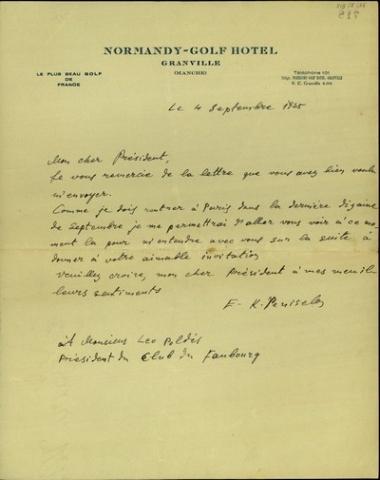 NORMANDY-GOLF HOTEL
GRANVILLE
(MANCHE)
LE PLUS BEAU GOLF
DE
FRANCE
Téléphone 101
R. C. Granville
Le 4 Septembre 1925
Mon cher Président,
Je vous remercie de la lettre que vous avez bien voulu
m'envoyer.
Comme je dois rentrer à Paris dans la dernière dizaine
de Septembre je me permettrai d'aller vous voir à ce mo-
ment là pour m'entendre avec vous sur la suite à
donner à votre aimable invitation
Veuillez croire, mon cher Président à mes meil
leurs sentiments
E. K. Veniselos
à Monsieur Leo Poldès
Président du Club du Faubourg